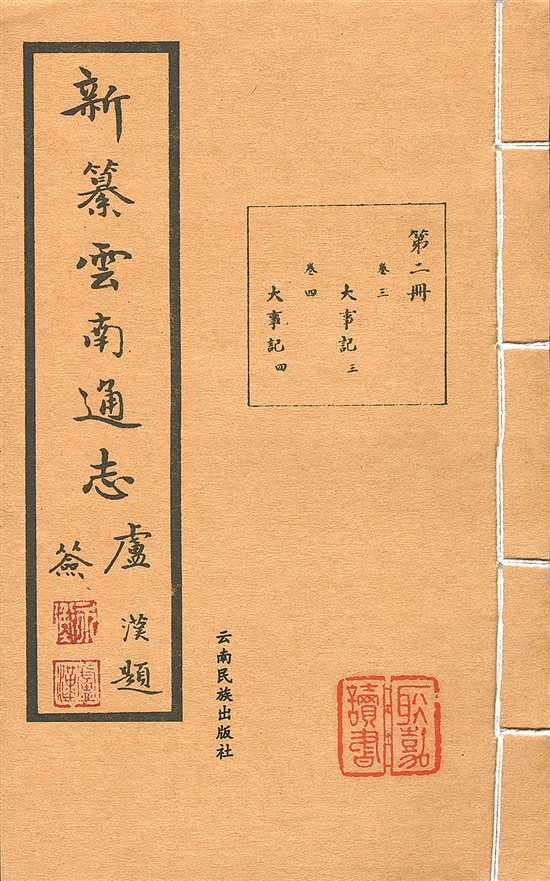 新纂雲南通志
盧漢題
簽
第二冊
卷三
大事記三
卷四
大事記四
云南民族出版社
讀書